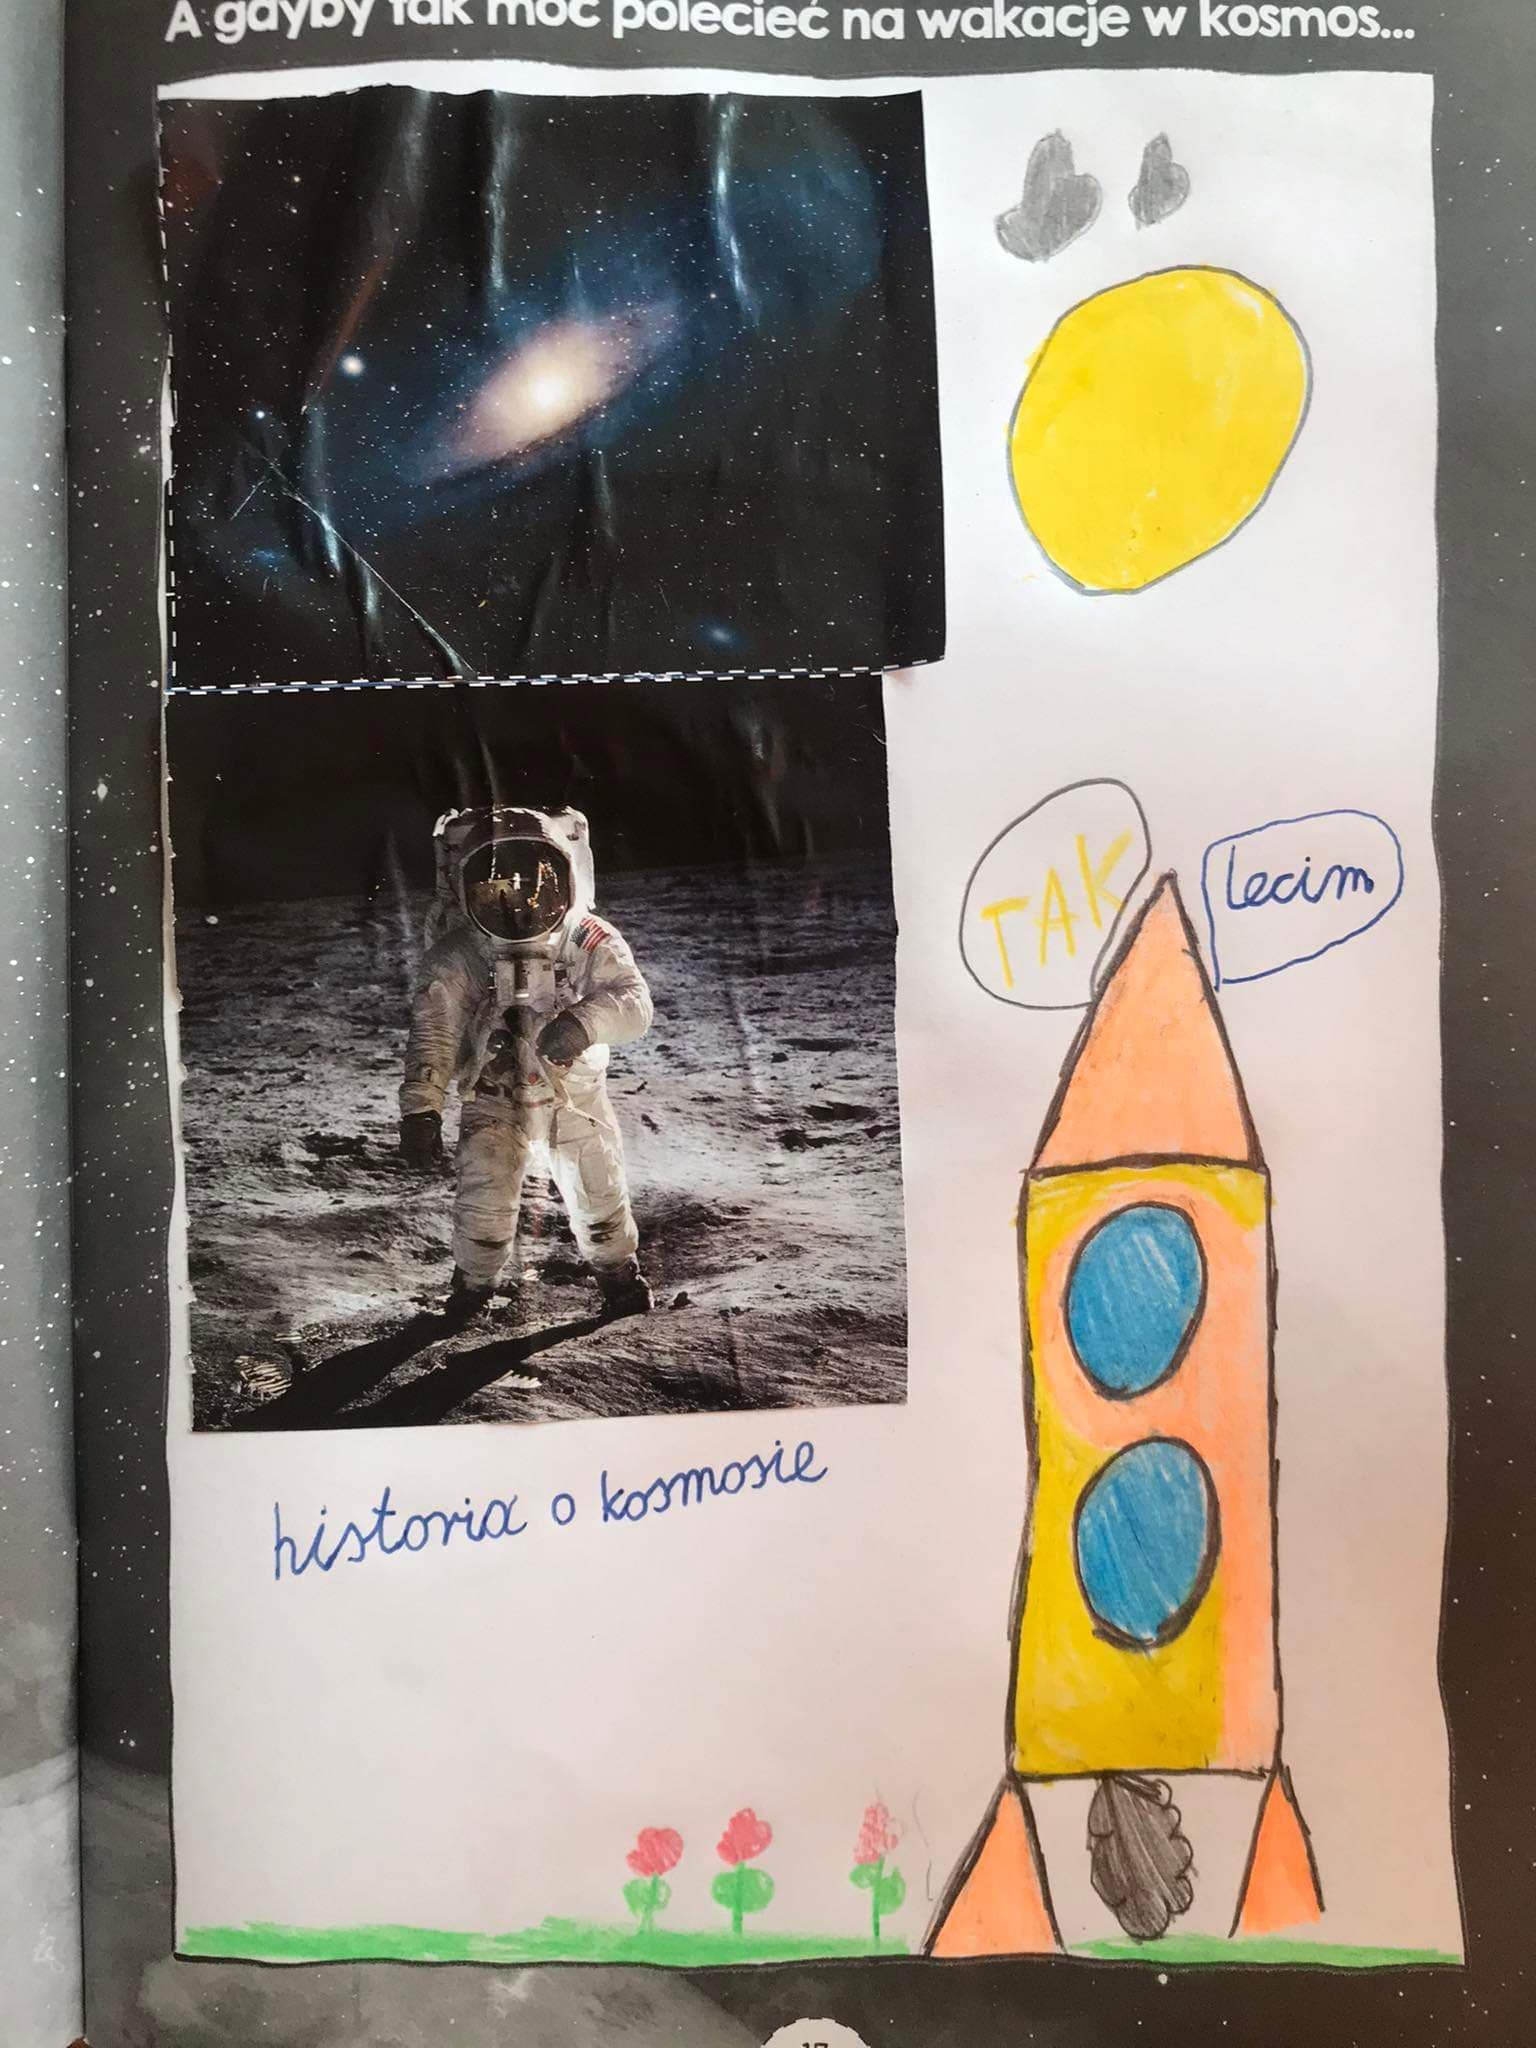 A gdyby tak móc polecieć na wakacje w kosmos...
TAK
lecim
historia o kosmosie
17